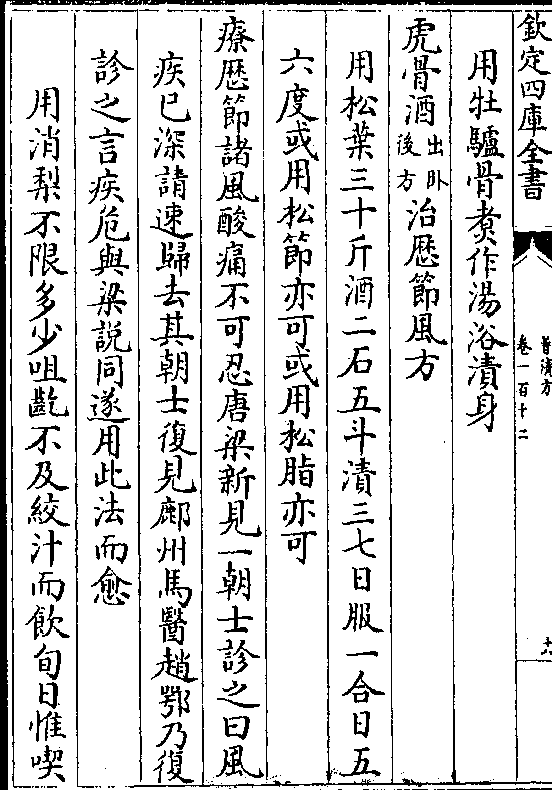 欽定四庫全書
普濟方
卷一百十二
用牡驢骨煮作湯浴漬身
虎骨酒出卧後方治歴節風方
用松葉三十斤酒二石五斗漬三七日服一合日五
六度或用松節亦可或用松脂亦可
療歴節諸風酸痛不可忍唐梁新見一朝士診之曰風
疾已深請速歸去其朝士復見鄜州馬醫趙鄂乃復
診之言疾危與梁説同遂用此法而愈
用消梨不限多少咀齕不及絞汁而飲旬日惟喫